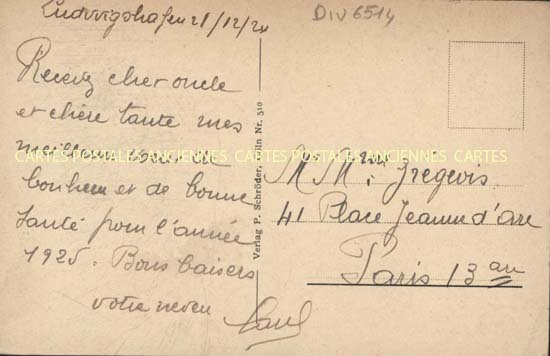 Ludwigshafen 21/12/24
DIV 6514
Recevez cher oncle
et chère tante mes
meilleurs voeux de
bonheur et de bonne
santé pour l'année
1925. Bons baisers
votre neveu
Verlag P. Schröder, Köln Nr. 510
Mr Mme
41 Place Jeanne d'Arc
Paris 13
CARTES POSTALES ANCIENNES CARTES POSTALES ANCIENNES CARTES